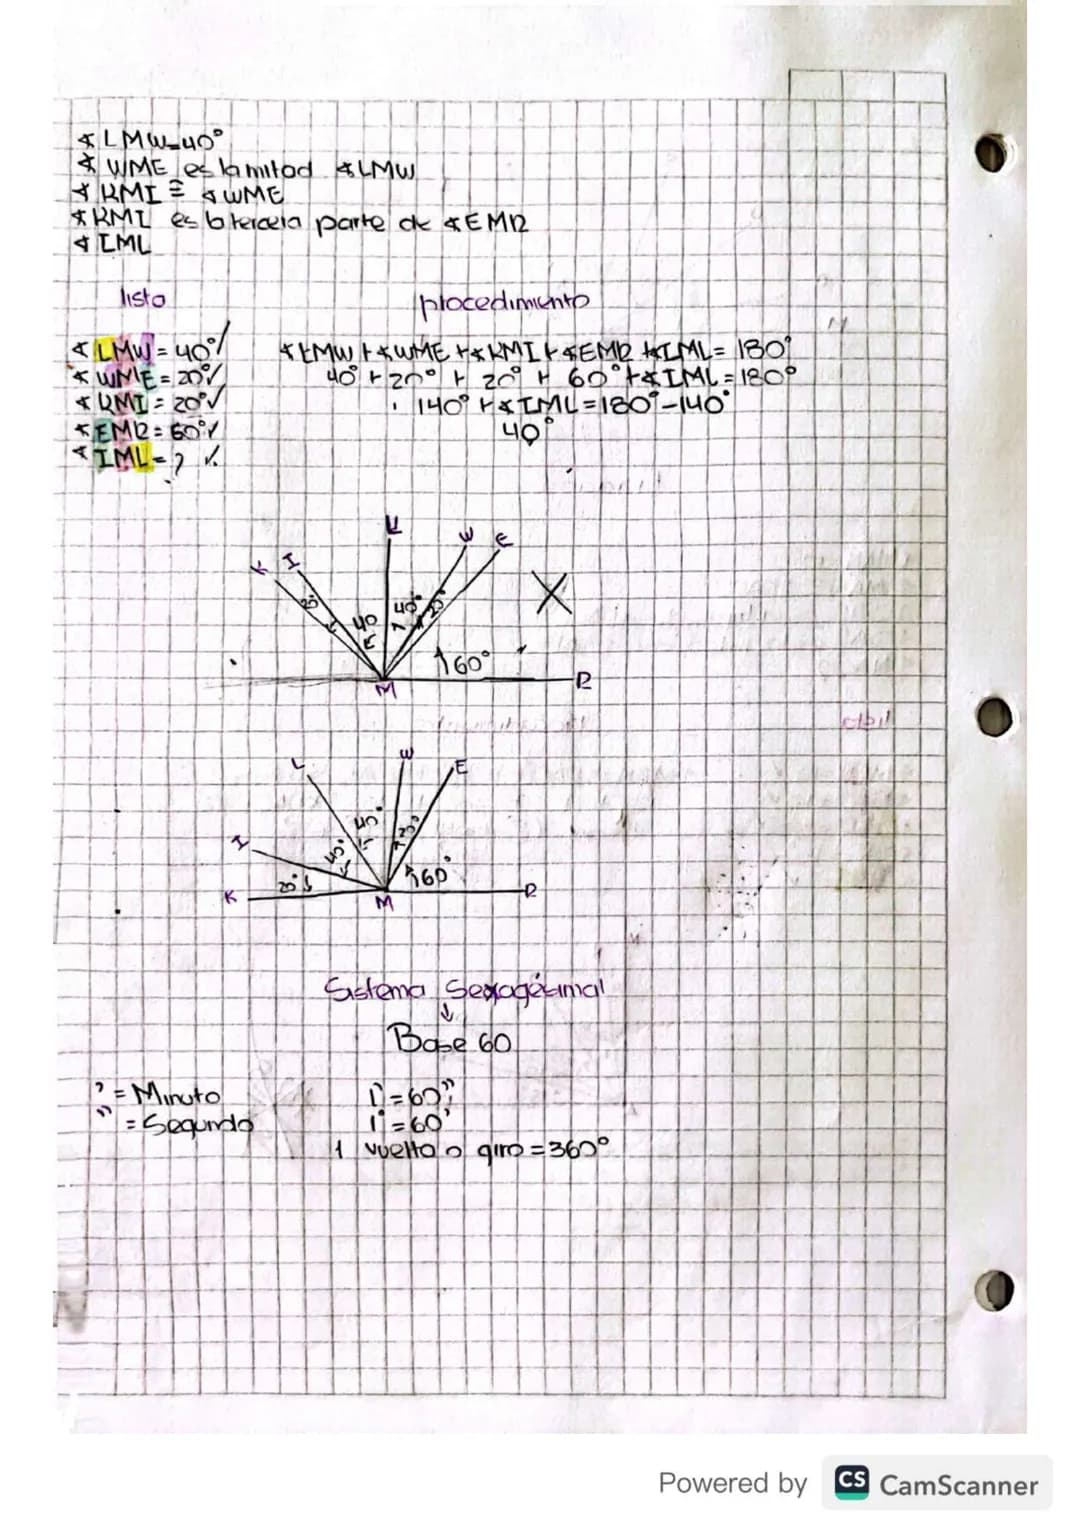 ∡LMW=40°
∡ WME es la mitad ∡LMW
∡ KMI ≅ ∡WME
∡KMI es la tercera parte de ∡EMR
∡ IML
listo
procedimiento
∡ LMW = 40°
∡ WME = 20°
∡ KMI = 20°
∡ EMR = 60°
∡ IML = ?
∡LMW + ∡WME + ∡KMI + ∡EMR + ∡IML = 180°
40° + 20° + 20° + 60° + ∡IML = 180°
140° + ∡IML = 180° - 140°
40°
K I L W E
20° 40 40° 20°
60°
M R
L W E
I 40° 40° 20°
K 20° 60°
M R
Sistema Sexagésimal
↓
Base 60
' = Minuto
'' = Segundo
1' = 60''
1° = 60'
1 vuelta o giro = 360°
Powered by CS CamScanner